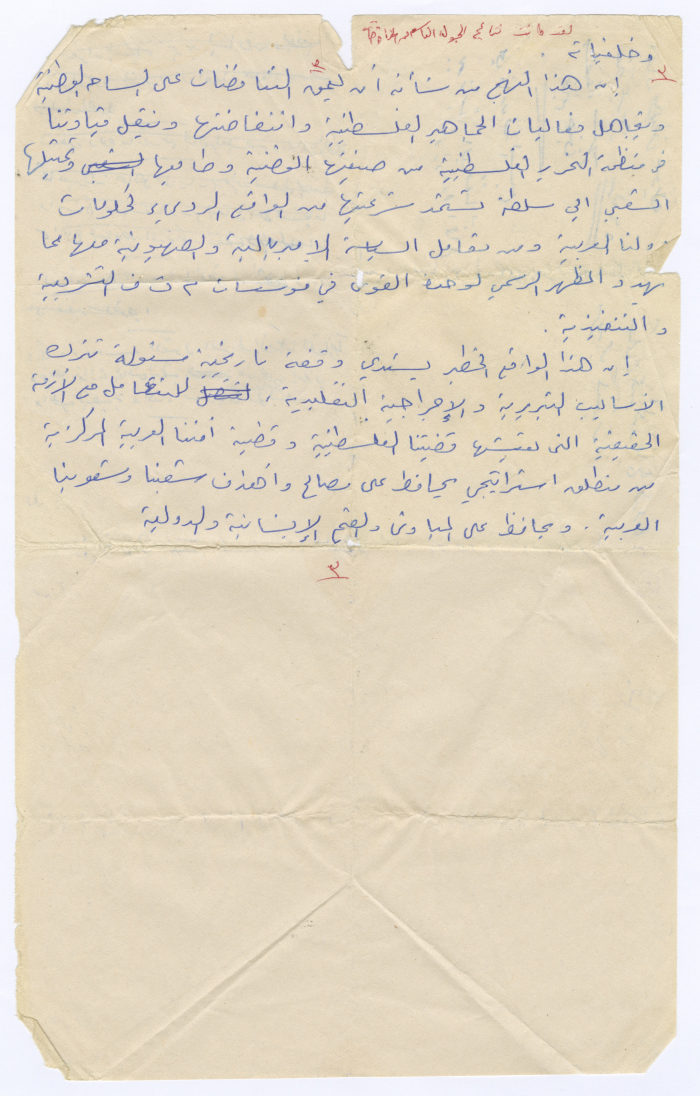 لقد كانت نتائج الجولة
وخلفياته .
٣
إن هذا النهج من شأنه أن يعمق التناقضات على الساحة الوطنية
ويتجاهل فعاليات الجماهير الفلسطينية وانتفاضتها وينقل قيادتنا
في منظمة التحرير الفلسطينية من صيغتها الوطنية وطابعها الشعبي وتمثيلها
الشعبي الى سلطة تستمد شرعيتها من الواقع الرديء لحكومات
دولنا العربية ومن تعامل السياسة الامبريالية والصهيونية معها مما
يهدد المظهر الرسمي لوحدة القوى في مؤسسات م ت ف التشريعية
والتنفيذية .
إن هذا الواقع الخطر يستدعي وقفة تاريخية مسئولة تترك
الأساليب التبريرية والإجراءية التقليدية ، للتعامل مع الأزمة
الحقيقية التي تعيشها قضيتنا الفلسطينية وقضية أمتنا العربية المركزية
من منطلق استراتيجي يحافظ على مصالح وأهداف شعبنا وشعوبنا
العربية . ويحافظ على المبادئ والقيم الإنسانية والدولية
٣